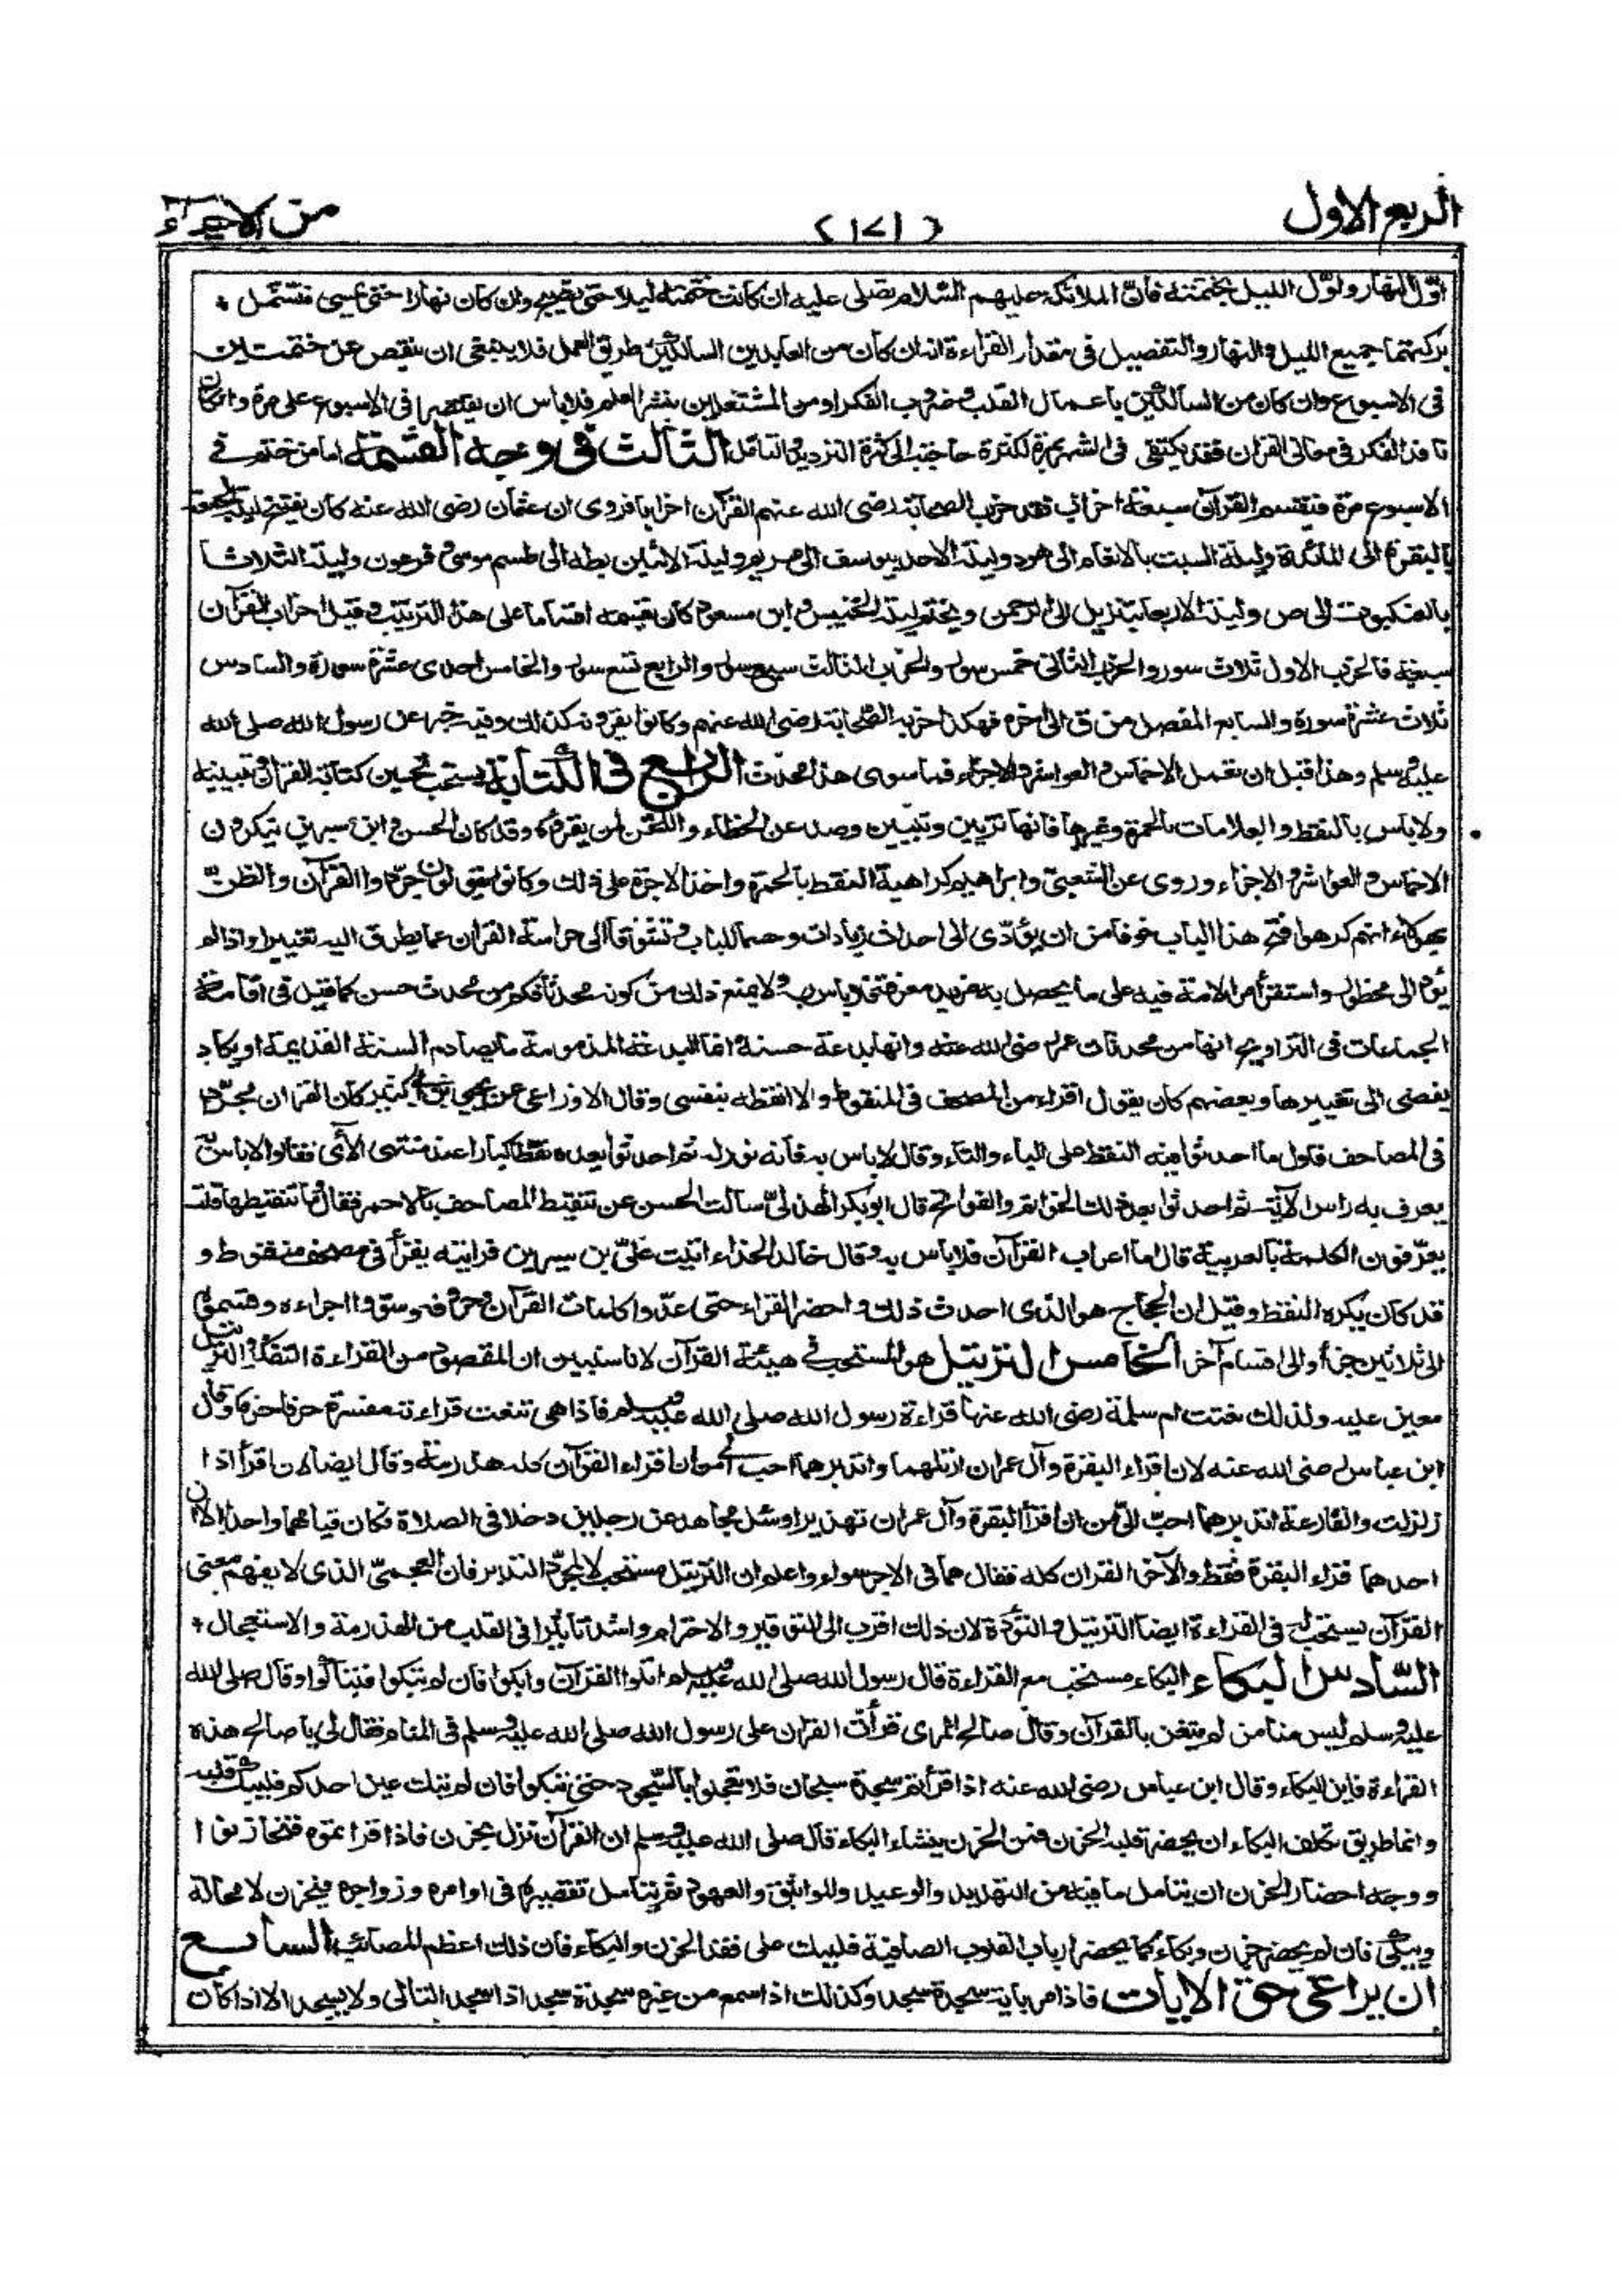 الربع الاول
(١٧١)
من الاحياء
اوّل النهار واوّل الليل بختمته فانّ الملائكة عليهم السّلام تصلى عليه ان كانت ختمته ليلا حتى يصبح وان كان نهارا حتى يمسى فتشمل
بركتهما جميع الليل والنهار والتفصيل فى مقدار القراءة انه ان كان من العابدين السالكين طريق العمل فلا ينبغى ان ينقص عن ختمتين
فى الاسبوع وان كان من السالكين باعمال القلب وضروب الفكر او من المشتغلين بنشر العلم فلا باس ان يقتصر فى الاسبوع على مرة وان كان
نافذ الفكر فى معانى القران فقد يكتفى فى الشهر بمرة لكثرة حاجته الى كثرة الترديد والتامل الثالث فى وجه القسمة اما من ختم فى
الاسبوع مرة فيقسم القرآن سبعة احزاب فقد حزب الصحابة رضى الله عنهم القرآن احزابا فروى ان عثمان رضى الله عنه كان يفتتح ليلة الجمعة
بالبقرة الى المائدة وليلة السبت بالانعام الى هود وليلة الاحد بيوسف الى مريم وليلة الاثنين بطه الى طسم موسى وفرعون وليلة الثلاثا
بالعنكبوت الى ص وليلة الاربعا بتنزيل الى الرحمن ويختم ليلة الخميس وابن مسعود كان يقسمه اقساما على هذا الترتيب وقيل احزاب القرآن
سبعة فالحزب الاول ثلاث سور والحزب الثانى خمس سور والحزب الثالث سبع سور والرابع تسع سور والخامس احدى عشرة سورة والسادس
ثلاث عشرة سورة والسابع المفصل من ق الى اخره فهكذا حزبه الصّحابة رضى الله عنهم وكانوا يقرؤنه كذلك وفيه خبر عن رسول الله صلى الله
عليه وسلم وهذا قبل ان تعمل الاخماس والعواشر والاجزاء فما سوى هذا محدث الرابع فى الكتابة يستحب تحسين كتابة القرآن وتبيينه
ولا باس بالنقط والعلامات بالحمرة وغيرها فانها تزيين وتبيين وصد عن الخطاء واللحن لمن يقرؤه وقد كان الحسن وابن سيرين ينكرون
الاخماس والعواشر والاجزاء وروى عن الشعبىّ وابراهيم كراهية النقط بالحمرة واخذ الاجرة على ذلك وكانوا يقولون جرّدوا القرآن والظنّ
بهؤلاء انهم كرهوا فتح هذا الباب خوفا من ان يؤدّى الى احداث زيادات وحسما للباب وتشوقا الى حراسة القران عما يطرق اليه تغييرا واذا لم
يؤد الى محظور واستقر أمر الامة فيه على ما يحصل به مزيد معرفة فلا باس به ولا يمنع ذلك من كونه محدثا فكم من محدث حسن كما قيل فى اقامة
الجماعات فى التراويح انها من محدثات عمر رضى الله عنه وانها بدعة حسنة انما البدعة المذمومة ما يصادم السنة القديمة او يكاد
يفضى الى تغييرها وبعضهم كان يقول اقراء من المصحف فى المنقوط والا انقطه بنفسى وقال الاوزاعى عن يحيى بن ابى كثير كان القران مجرّدا
فى المصاحف فاول ما احدثوا فيه النقط على الباء والتاء وقال لا باس به فانه نور له ثم احدثوا بعده نقطا كبارا عند منتهى الآى فقالوا لا باس
يعرف به راس الآية ثم احدثوا بعد ذلك الخواتم والفواتح قال ابو بكر الهذلىّ سالت الحسن عن تنقيط المصاحف بالاحمر فقال ما تنقيطها قلت
يعرّفون الكلمة بالعربية قال اما اعراب القرآن فلا باس به وقال خالد الحذاء اتيت علىّ بن سيرين فرايته يقرأ فى مصحف منقوط و
قد كان يكره النقط وقيل ان الحجّاج هو الذى احدث ذلك واحضر القراء حتى عدّوا كلمات القرآن وحروفه وسوّوا اجزاءه وقسموه
الى ثلاثين جزأ والى اقسام آخر الخامس الترتيل هو المستحب فى هيئة القرآن لانا سنبين ان المقصود من القراءة التفكر والترتيل
معين عليه ولذلك نعتت ام سلمة رضى الله عنها قراءة رسول الله صلى الله عليه وسلم فاذا هى تنعت قراءته مفسرة حرفا حرفا وقال
ابن عباس رضى الله عنه لان اقراء البقرة وآل عمران ارتلهما واتدبرهما احب الى من ان اقراء القرآن كله هذرمة وقال ايضا لان اقرأ اذا
زلزلت والقارعة اتدبرهما احبّ الىّ من ان اقرأ البقرة وآل عمران تهذيرا وسئل مجاهد عن رجلين دخلا فى الصلاة فكان قيامهما واحدا الا ان
احدهما قراء البقرة فقط والآخر القران كله فقال هما فى الاجر سواء واعلم ان الترتيل مستحب لا لمجرّد التدبر فان العجمىّ الذى لا يفهم معنى
القرآن يستحب له فى القراءة ايضا الترتيل والتؤدة لان ذلك اقرب الى التوقير والاحترام واشد تاثيرا فى القلب من الهذرمة والاستعجال
السّادس البكاء البكاء مستحب مع القراءة قال رسول الله صلى الله عليه وسلم اتلوا القرآن وابكوا فان لم تبكوا فتباكوا وقال صلى الله
عليه وسلم ليس منا من لم يتغن بالقرآن وقال صالح المرى قرأت القران على رسول الله صلى الله عليه وسلم فى المنام فقال لى يا صالح هذه
القراءة فاين البكاء وقال ابن عباس رضى الله عنه اذا قرأتم سجدة سبحان فلا تعجلوا بالسّجود حتى تبكوا فان لم تبك عين احدكم فليبك قلبه
وانما طريق تكلف البكاء ان يحضر قلبه الحزن فمن الحزن ينشاء البكاء قال صلى الله عليه وسلم ان القرآن نزل بحزن فاذا قراتموه فتحازنوا
ووجه احضار الحزن ان يتامل ما فيه من التهديد والوعيد والمواثيق والعهود ثم يتامل تقصيره فى اوامره وزواجره فيحزن لا محالة
ويبكى فان لم يحضره حزن وبكاء كما يحضر ارباب القلوب الصافية فليبك على فقد الحزن والبكاء فان ذلك اعظم المصائب السابع
ان يراعى حق الايات فاذا مر باية سجدة سجد وكذلك اذا سمع من غيره سجدة سجد اذا سجد التالى ولا يسجد الا اذا كان